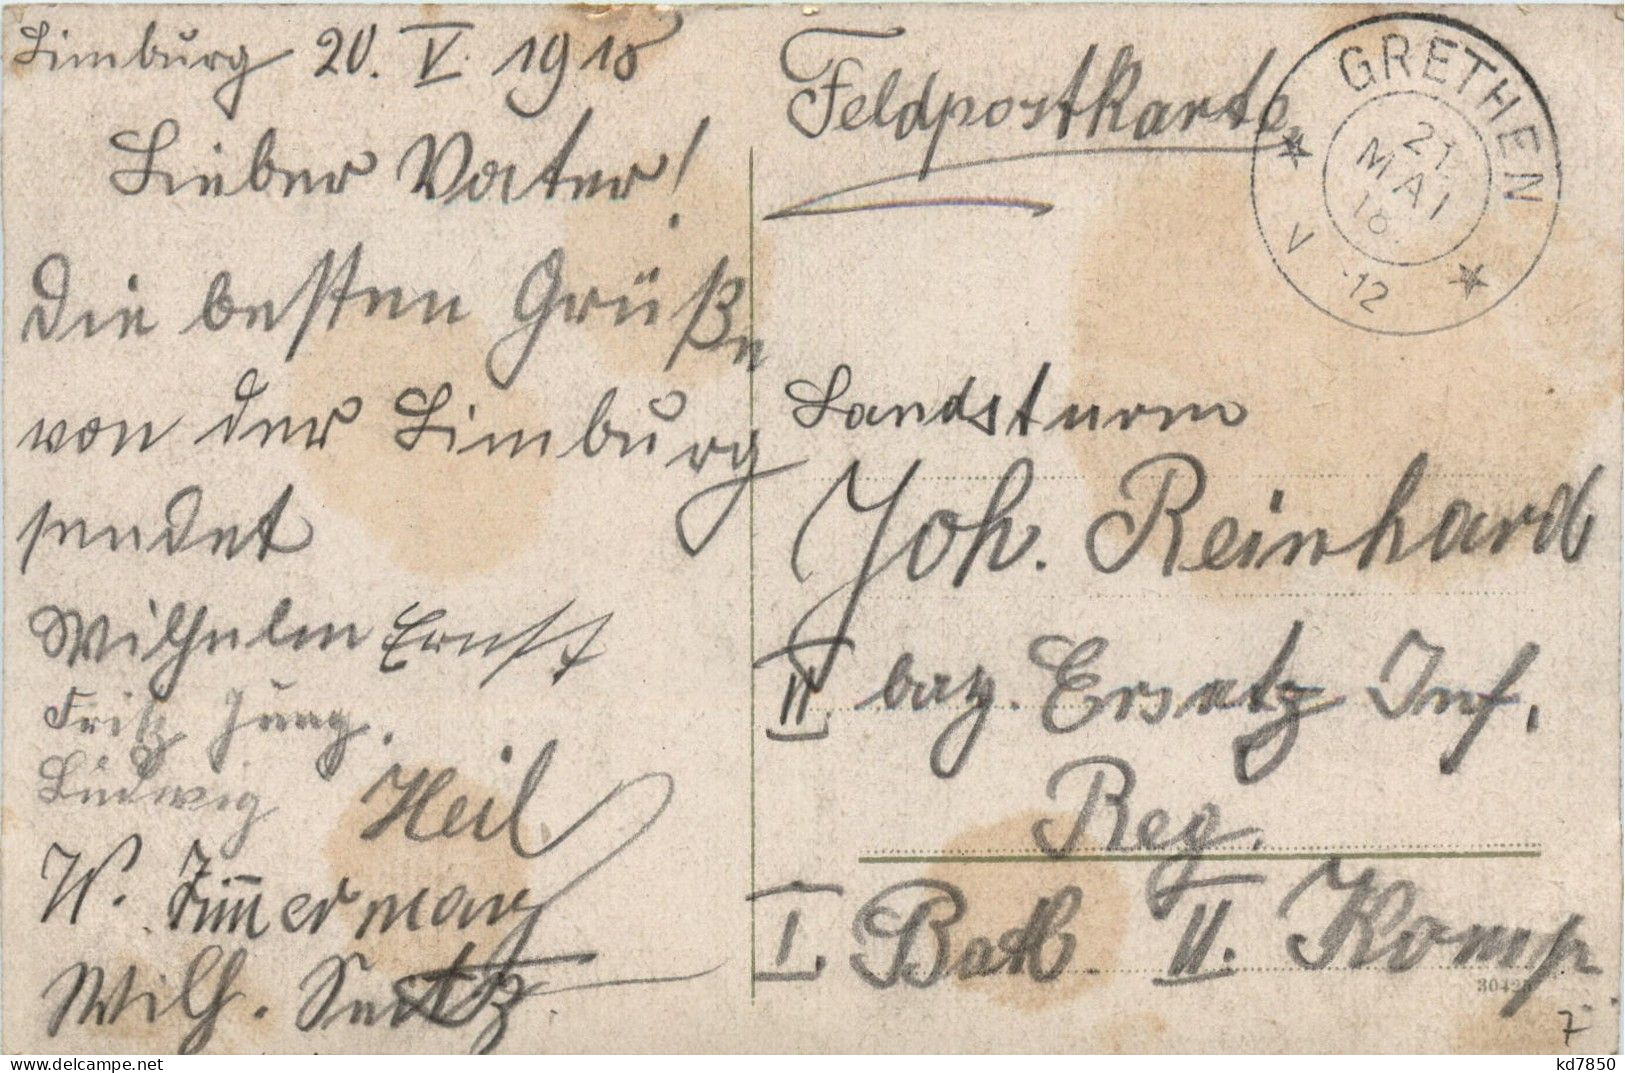 Limburg 20. V. 1918
Lieber Vater!
Die besten Grüße
von der Limburg
sendet
Wilhelm Ernst
Fritz Jung.
Ludwig Heil
W. Zimmermann
Wilh. Seitz
Feldpostkarte
GRETHEN
21.
MAI
18.
V -12
Landsturm
Joh. Reinhard
II. bay. Ersatz Inf.
Reg.
I. Batl. II. Komp
30425
7
kd7850